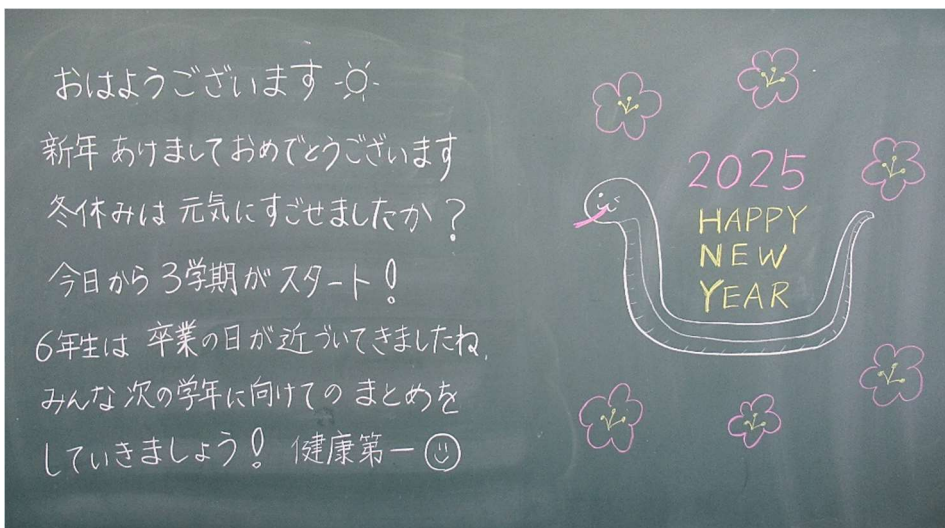 おはようございます
新年 あけましておめでとうございます
冬休みは 元気にすごせましたか？
今日から 3学期がスタート！
6年生は 卒業の日が近づいてきましたね.
みんな次の学年に向けての まとめを
していきましょう！ 健康第一
2025
HAPPY
NEW
YEAR